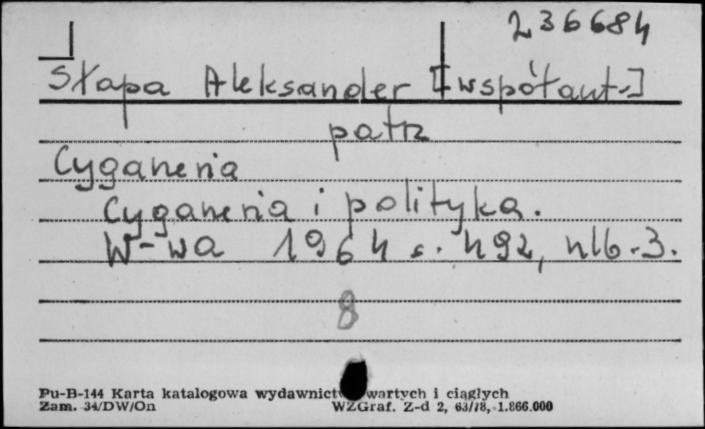 236684
Słapa Aleksander [współaut.]
patrz
Cyganeria
Cyganeria i polityka.
W-wa 1964 s. 492, nlb. 3.
8
Pu-B-144 Karta katalogowa wydawnictw zwartych i ciągłych
Zam. 34/DW/On WZGraf. Z-d 2, 63/78, 1.866.000